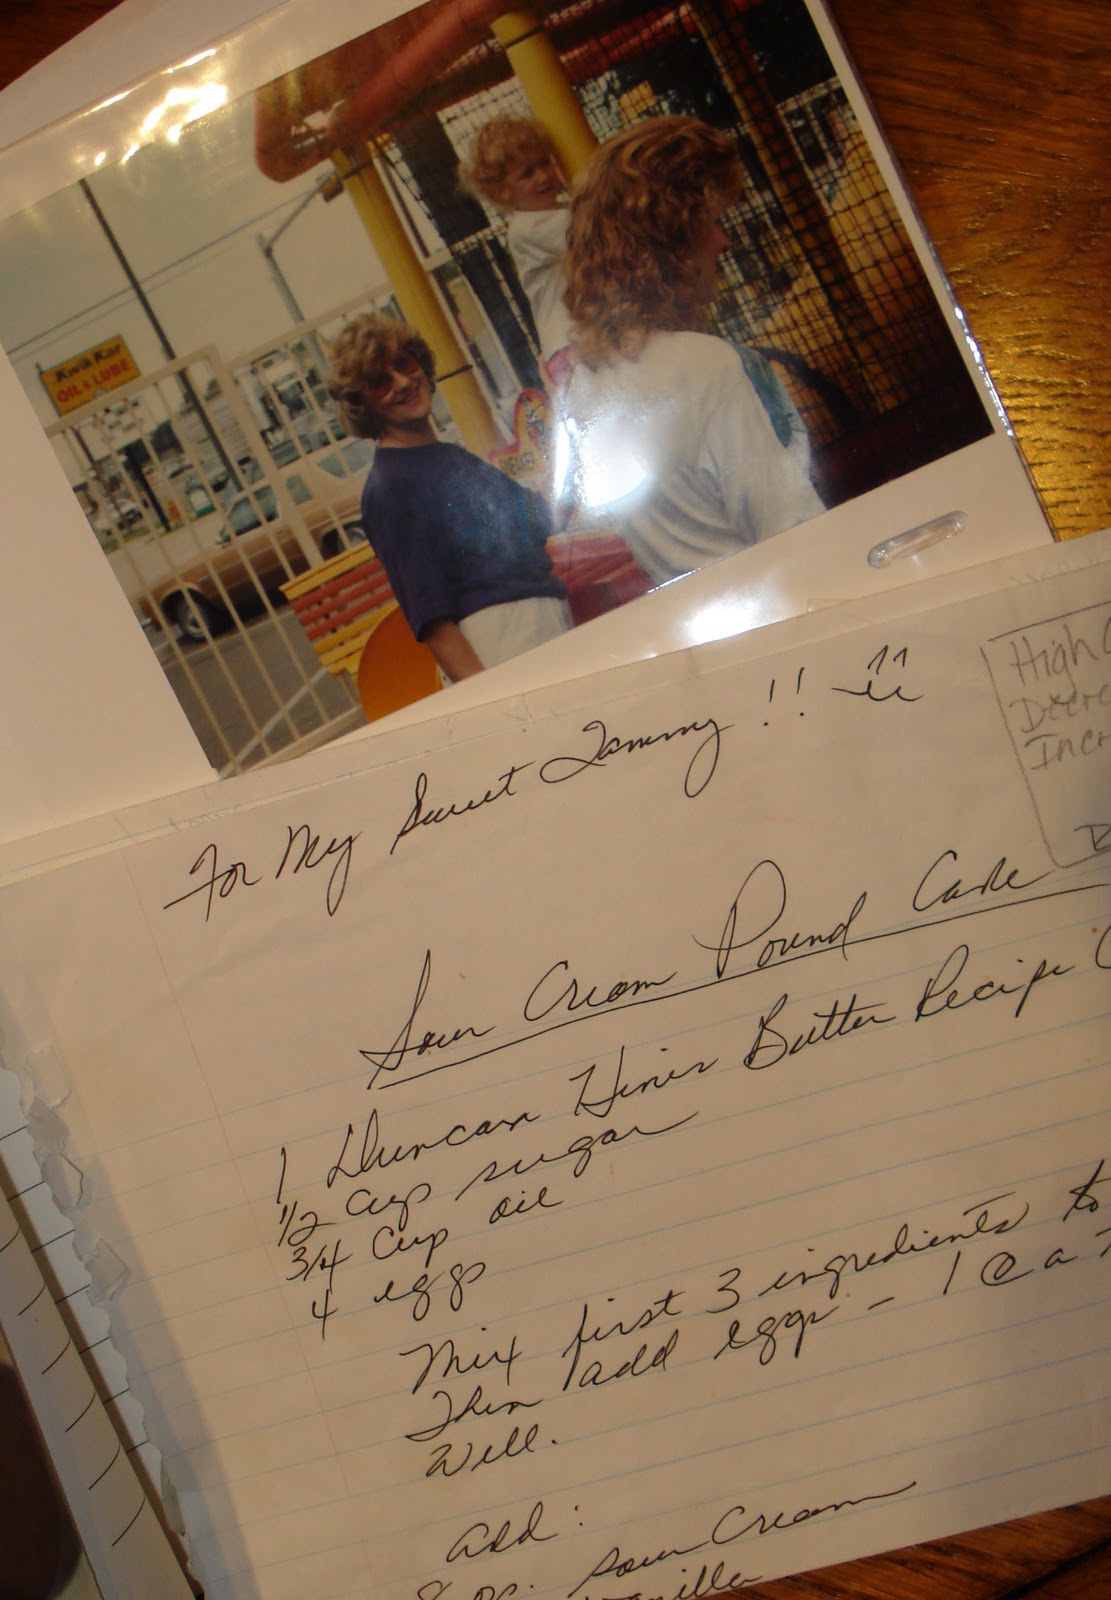 Kwik Kar
OIL & LUBE
For My Sweet Tammy!!
High
Decre
Incr
Sour Cream Pound Cake
1 Duncan Hines Butter Recipe
1/2 cup sugar
3/4 cup oil
4 eggs
Mix first 3 ingredients to
Then add eggs - 1 @ a
well.
add:
8 oz. sour cream
vanilla